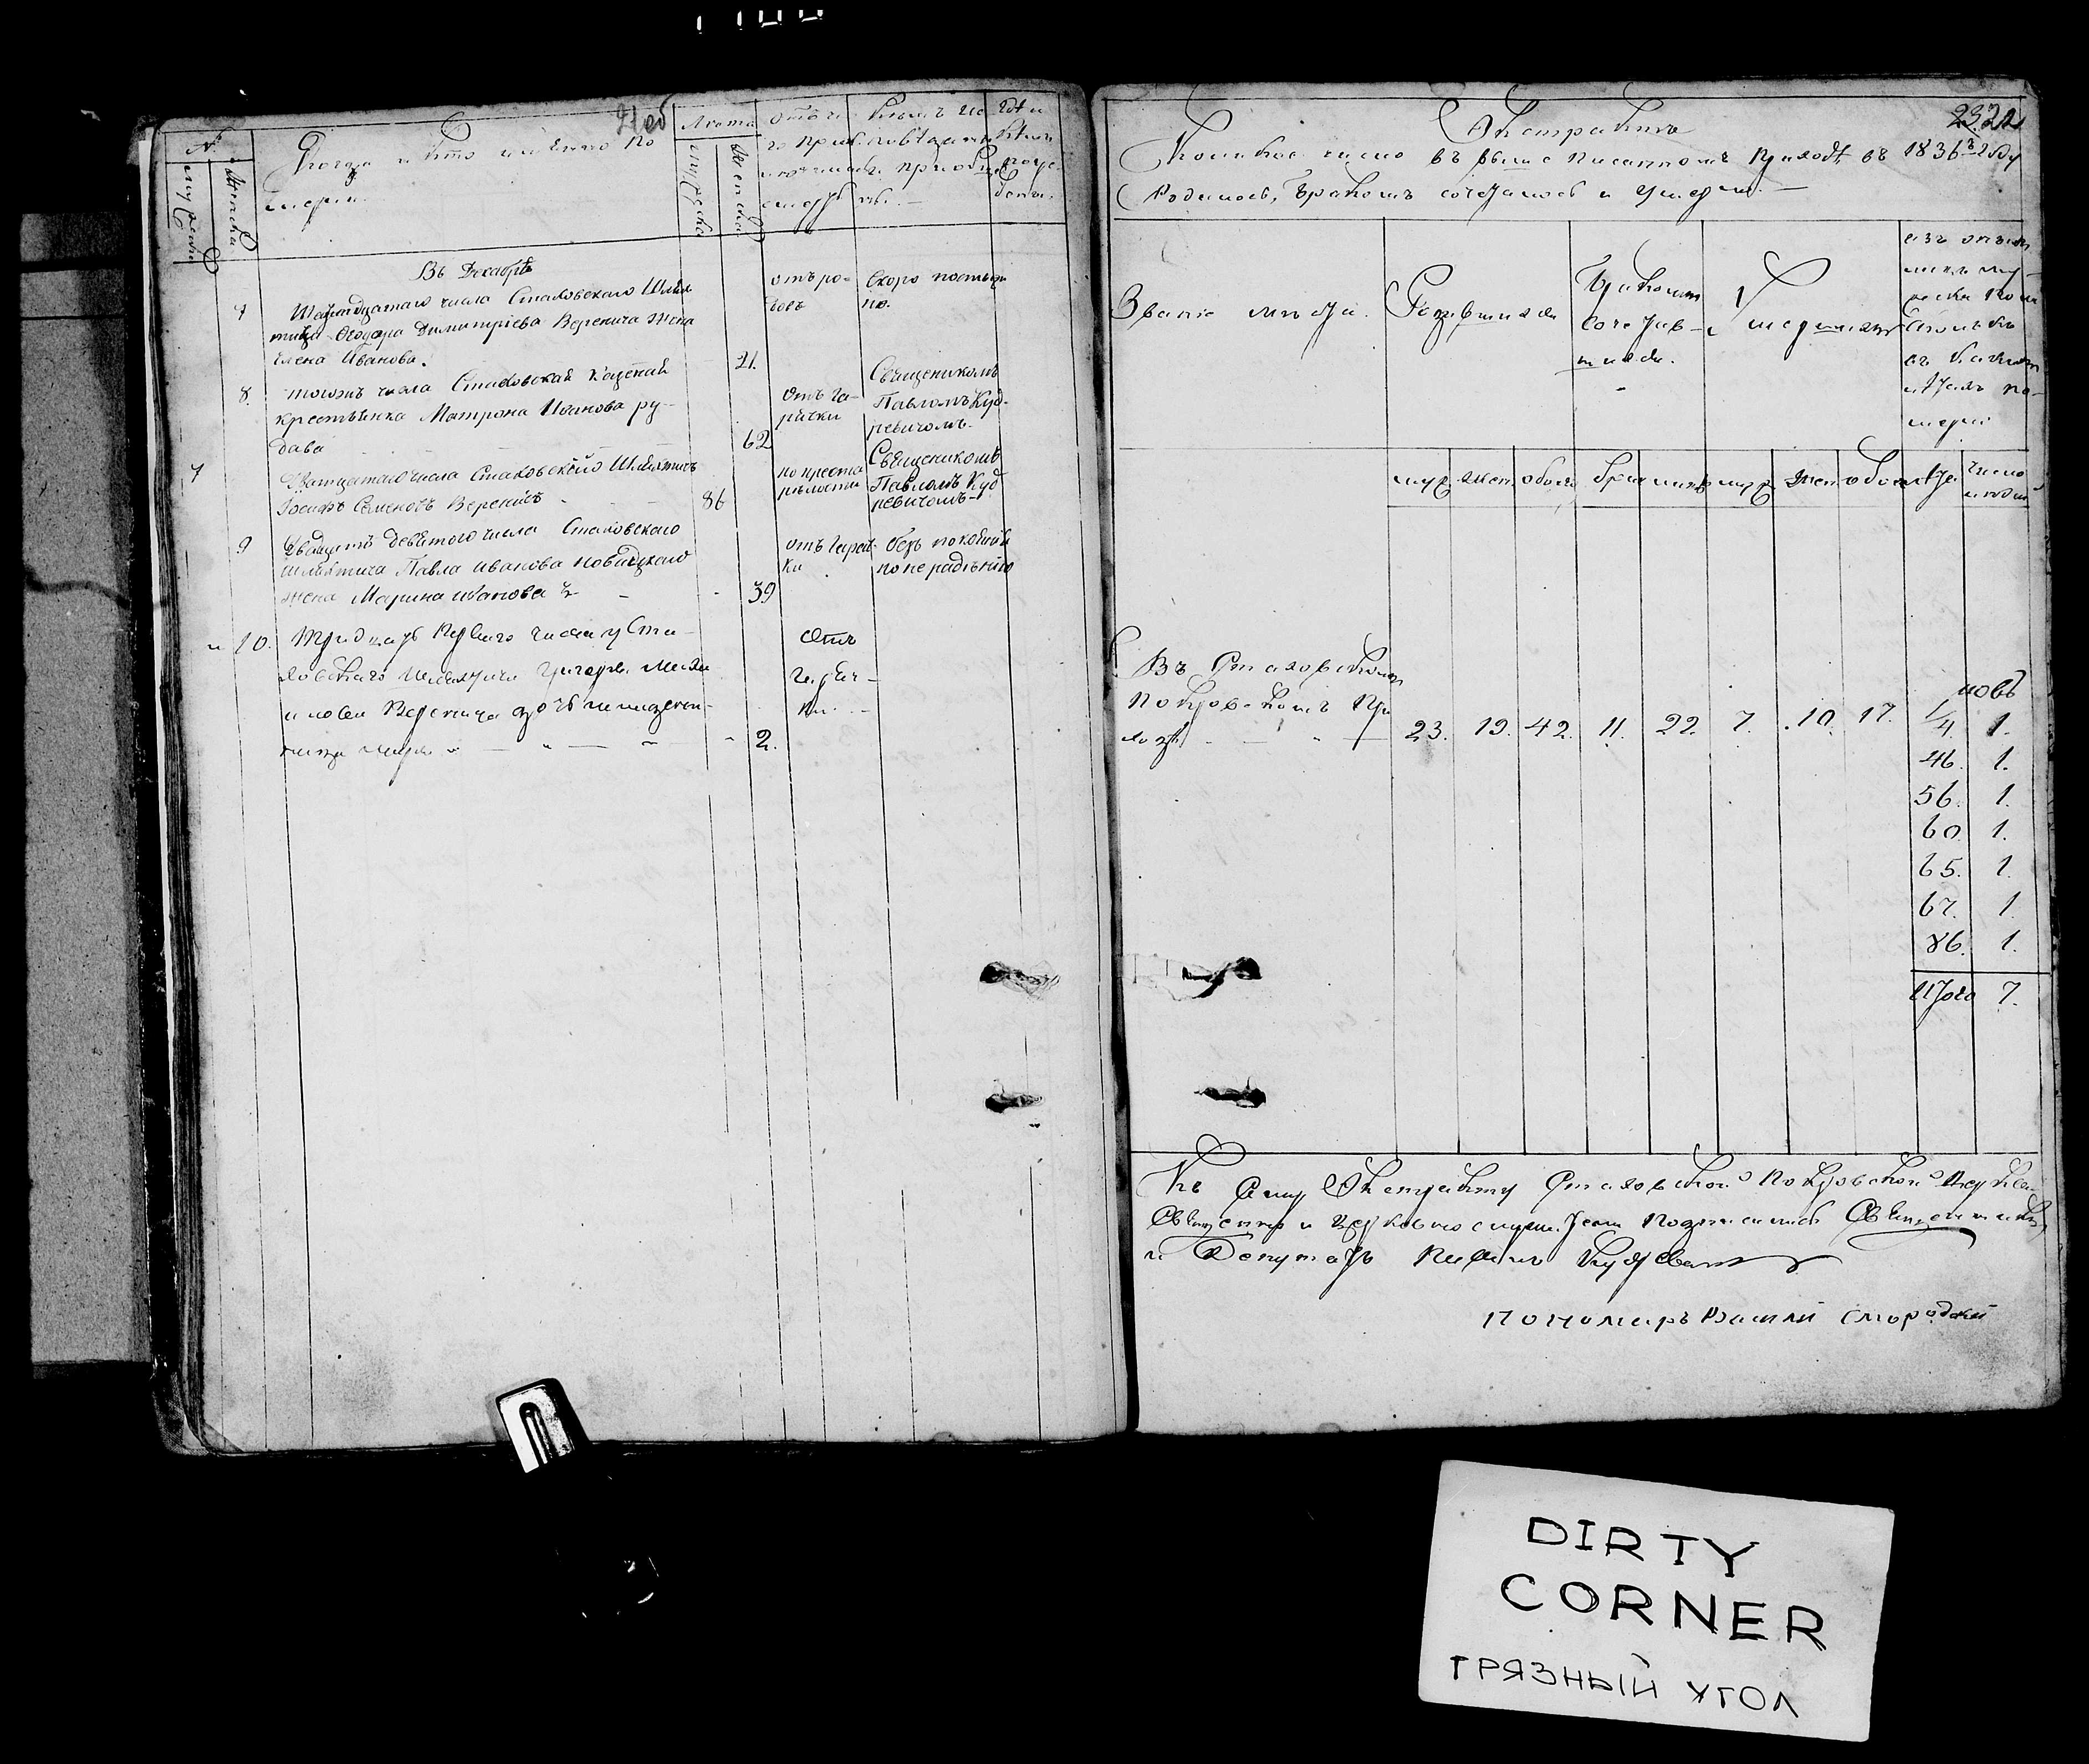 21 об
№
мужеска
женска
Когда и кто именно по
мерли.
Лета
мужеска
женска
отъ че
го приклю
чилась
смерть
Кемъ ис
поведаны
и приобще
ны.
Где и
кемъ
погре
бены.
Въ Декабре
7
Шеснадцатаго числа Стаховскаго Шлях
тича Ѳеодора Димитріева Веренича жена
Елена Иванова.
21.
отъ ро-
довъ
Скоро постиж
но.
8.
тогожъ числа Стаховская Казенная
крестьянка Матрона Иванова ру-
дава
62
отъ го-
рячки
Священикомъ
Павломъ Куд-
ревичомъ.
7
Двацатаго числа Стаховскаго Шляхтичъ
Іосифъ Семеновъ Вереничъ
86
по преста
релости
Священикомъ
Павломъ Куд
ревичомъ
9
Двадцать девятого числа Стаховскаго
шляхтича Павла Иванова новацкаго
жена Марина Иванова
39
отъ горяч-
ки
безъ
по нерадѣнію
10.
Тридцать перваго числа у Ста-
ховскаго Шляхтича Григорія
Веренича дочь
2.
Отъ
горяч-
ки
Экстрактъ
23. 22
Коликое число въ выше писанномъ Приходѣ въ 1836 году
Родилось, Бракомъ сочеталось и Умерли.
Званіе места.
Родившихся
Бракомъ
Сочетав-
шихся.
Умершихъ
изъ оныхъ
муж-
еска пола
Сколько
въ какихъ
летахъ по-
мерли
муж. жен. обоего браковъ муж. жен. обоего лета число
людей
Въ Стаховскомъ
Покровскомъ При
ходѣ
23. 19. 42. 11. 22. 7. 10. 17. 1/4 1.
46. 1.
56. 1.
60. 1.
65. 1.
67. 1.
86. 1.
Итого 7.
Къ Сему Экстракту Стаховской Покровской Церкви
Священно и Церковно служители подписались Священникъ
и Депутатъ Павелъ Кудревичъ
Пономарь Василій Смородскій
DIRTY
CORNER
ГРЯЗНЫЙ УГОЛ